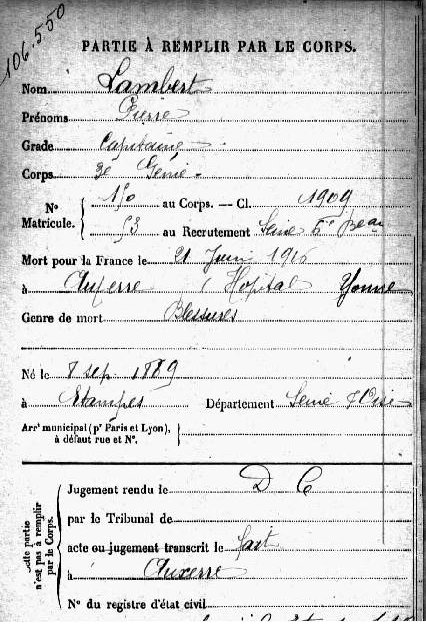 106.550
PARTIE À REMPLIR PAR LE CORPS.
Nom Lambert
Prénoms Pierre
Grade Capitaine
Corps 3e Génie
N° Matricule. au Corps. — Cl. 1909
53 au Recrutement Seine 5e Beau
Mort pour la France le 21 Juin
à Auxerre Hopital Yonne
Genre de mort Blessures
Né le 8 sep 1889
à Etampes Département Seine & Oise
Arrt municipal (pr Paris et Lyon), à défaut rue et N°.
Cette partie n'est pas à remplir par le Corps.
Jugement rendu le D C
par le Tribunal de
acte ou jugement transcrit le fait
à Auxerre
N° du registre d'état civil